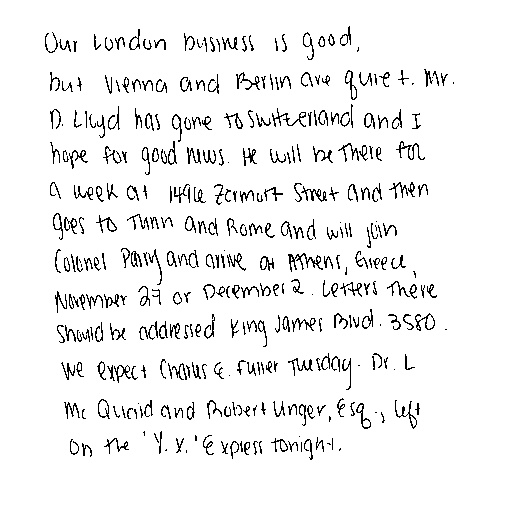 Our London business is good,
but Vienna and Berlin are quiet. Mr.
D. Lloyd has gone to Switzerland and I
hope for good news. He will be there for
a week at 1496 Zermott Street and then
goes to Turin and Rome and will join
Colonel Parry and arrive at Athens, Greece,
November 27 or December 2. Letters there
should be addressed King James Blvd. 3580.
We expect Charles E. Fuller Tuesday. Dr. L
Mc Quaid and Robert Unger, Esq., left
on the 'Y.X.' Express tonight.